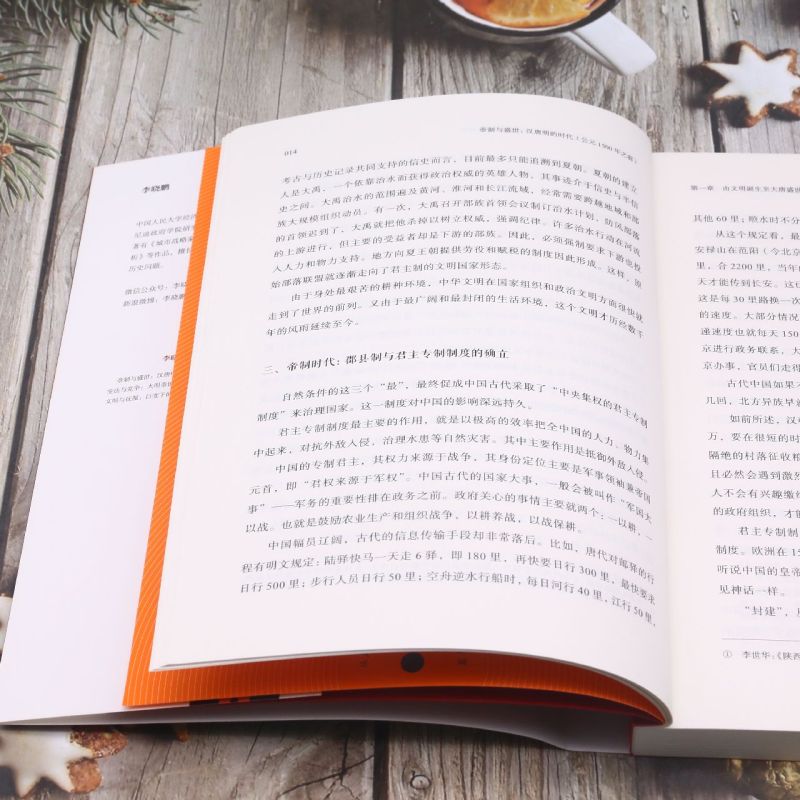 李晓鹏
中国人民大学经济
尼迪政府学院研究
著有《城市战略家
析》等作品,擅长
历史问题。
微信公众号:李晓
新浪微博:李晓鹏
014
帝制与盛世:汉唐明的时代(公元1500年之前)
考古与历史记录共同支持的信史而言,目前最多只能追溯到夏朝。夏朝的建立
人是大禹,一个依靠治水而获得政治权威的英雄人物。其事迹介于信史与半信
史之间。大禹治水的范围遍及黄河、淮河和长江流域,经常需要跨越地域和部
族大规模组织动员。有一次,大禹召开部族首领会议制订治水计划,防风部落
的首领迟到了,大禹就把他杀掉以树立权威,强调纪律。许多治水行动在河流
的上游进行,但主要的受益者却是下游的部族。因此,必须强制要求下游也投
入人力和物力支持。地方向夏王朝提供劳役和赋税的制度因此形成。这样,原
始部落联盟就逐渐走向了君主制的文明国家形态。
由于身处最艰苦的耕种环境,中华文明在国家组织和政治文明方面很快就
走到了世界的前列。又由于最广阔和最封闭的生活环境,这个文明才历经数千
年的风雨延续至今。
三、帝制时代:郡县制与君主专制制度的确立
自然条件的这三个“最”,最终促成中国古代采取了“中央集权的君主专制
制度”来治理国家。这一制度对中国的影响深远持久。
君主专制制度最主要的作用,就是以极高的效率把全中国的人力、物力集
中起来,对抗外敌入侵、治理水患等自然灾害。其中主要作用是抵御外敌入侵。
中国的专制君主,其权力来源于战争,其身份定位主要是军事领袖兼帝国
元首,即“君权来源于军权”。中国古代的国家大事,一般会被叫作“军国大
事”——军务的重要性排在政务之前。政府关心的事情主要就两个:一以耕,一
以战。也就是鼓励农业生产和组织战争,以耕养战,以战保耕。
中国幅员辽阔,古代的信息传输手段却非常落后。比如,唐代对邮驿的行
程有明文规定:陆驿快马一天走6驿,即180里,再快要日行300里,最快要求
日行500里;步行人员日行50里;空舟逆水行船时,每日河行40里,江行50里,
第一章 由文明诞生至大唐盛世
其他60里;顺水时不分
从这个规定看,最
安禄山在范阳(今北京
里,合2200里,当年
天才能传到长安。这已
这是每30里路换一次
的速度。大部分情况
递速度也就每天150
京进行政务联系,大
京办事,官员们走得
古代中国如果
几回,北方异族早就
如前所述,汉
万,要在很短的时
隔绝的村落征收粮
且必然会遇到激
人不会有兴趣缴
的政府组织,才
君主专制制
制度。欧洲在15
听说中国的皇帝
见神话一样。
“封建”,
① 李世华:《陕西